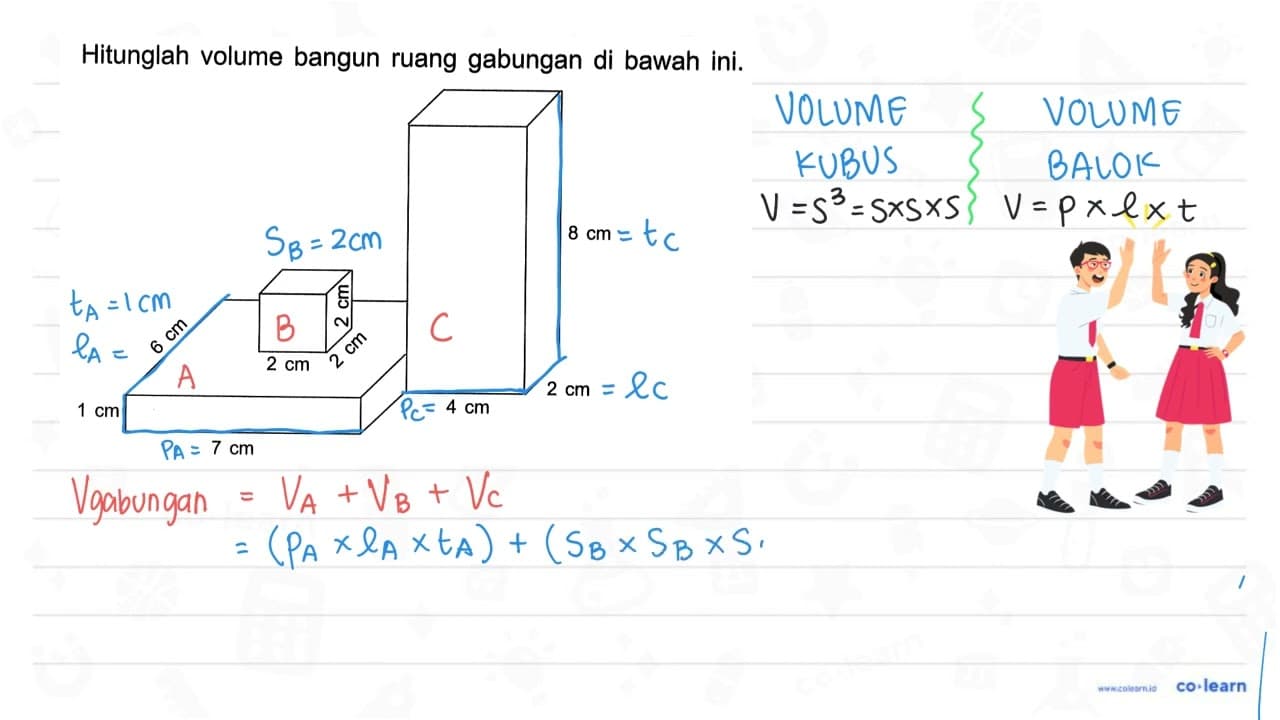 Hitunglah volume bangun ruang gabungan di bawah ini.
VOLUME KUBUS
V = S³ = S×S×S
VOLUME BALOK
V = P × l × t
S_B = 2cm
8 cm = t_C
t_A = 1 cm
l_A = 6 cm
A
B
C
2 cm
2 cm
2 cm
1 cm
P_A = 7 cm
P_C = 4 cm
2 cm = l_C
Vgabungan = V_A + V_B + V_C
= (P_A × l_A × t_A) + (S_B × S_B × S
www.colearn.id
co·learn